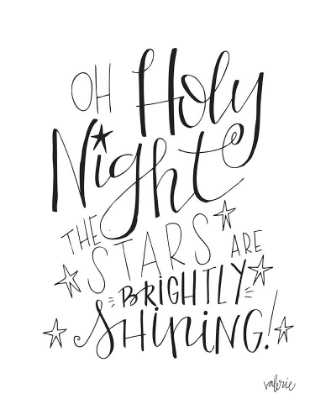 OH Holy
Night
THE
STARS ARE
BRIGHTLY
SHINING!
valerie